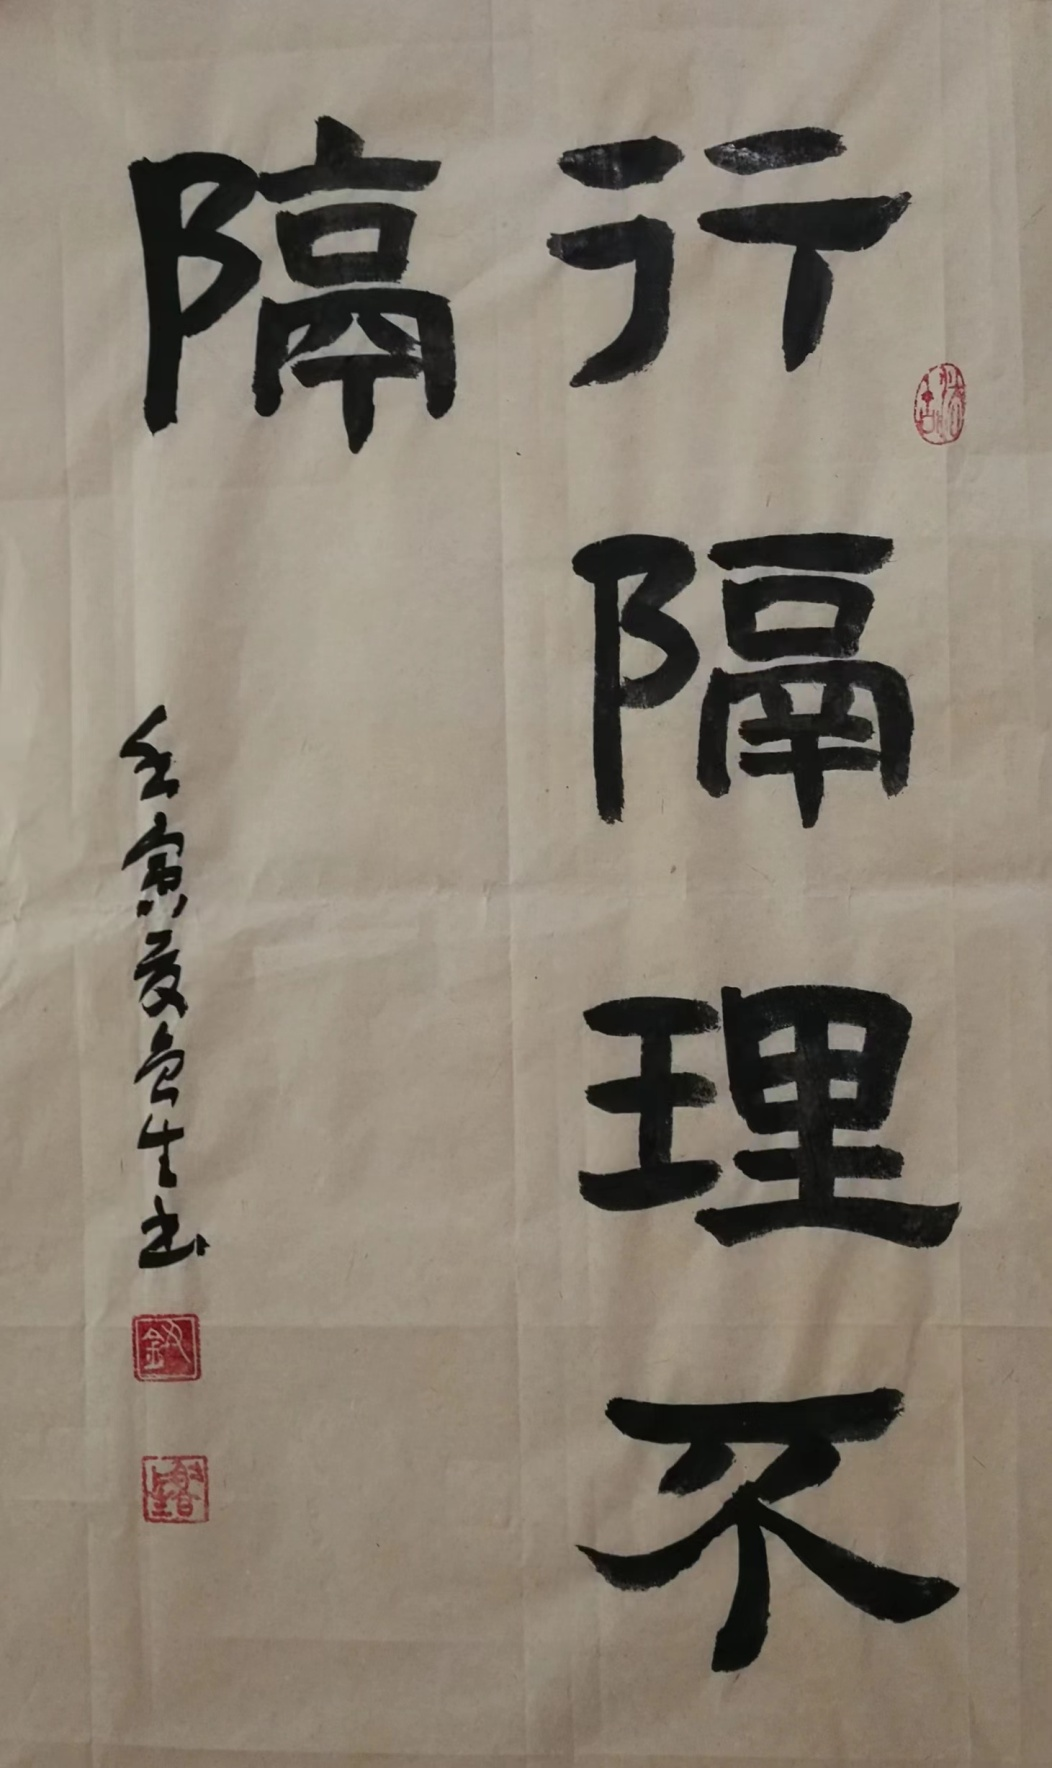 行隔理不
隔
壬寅夏鲁生书